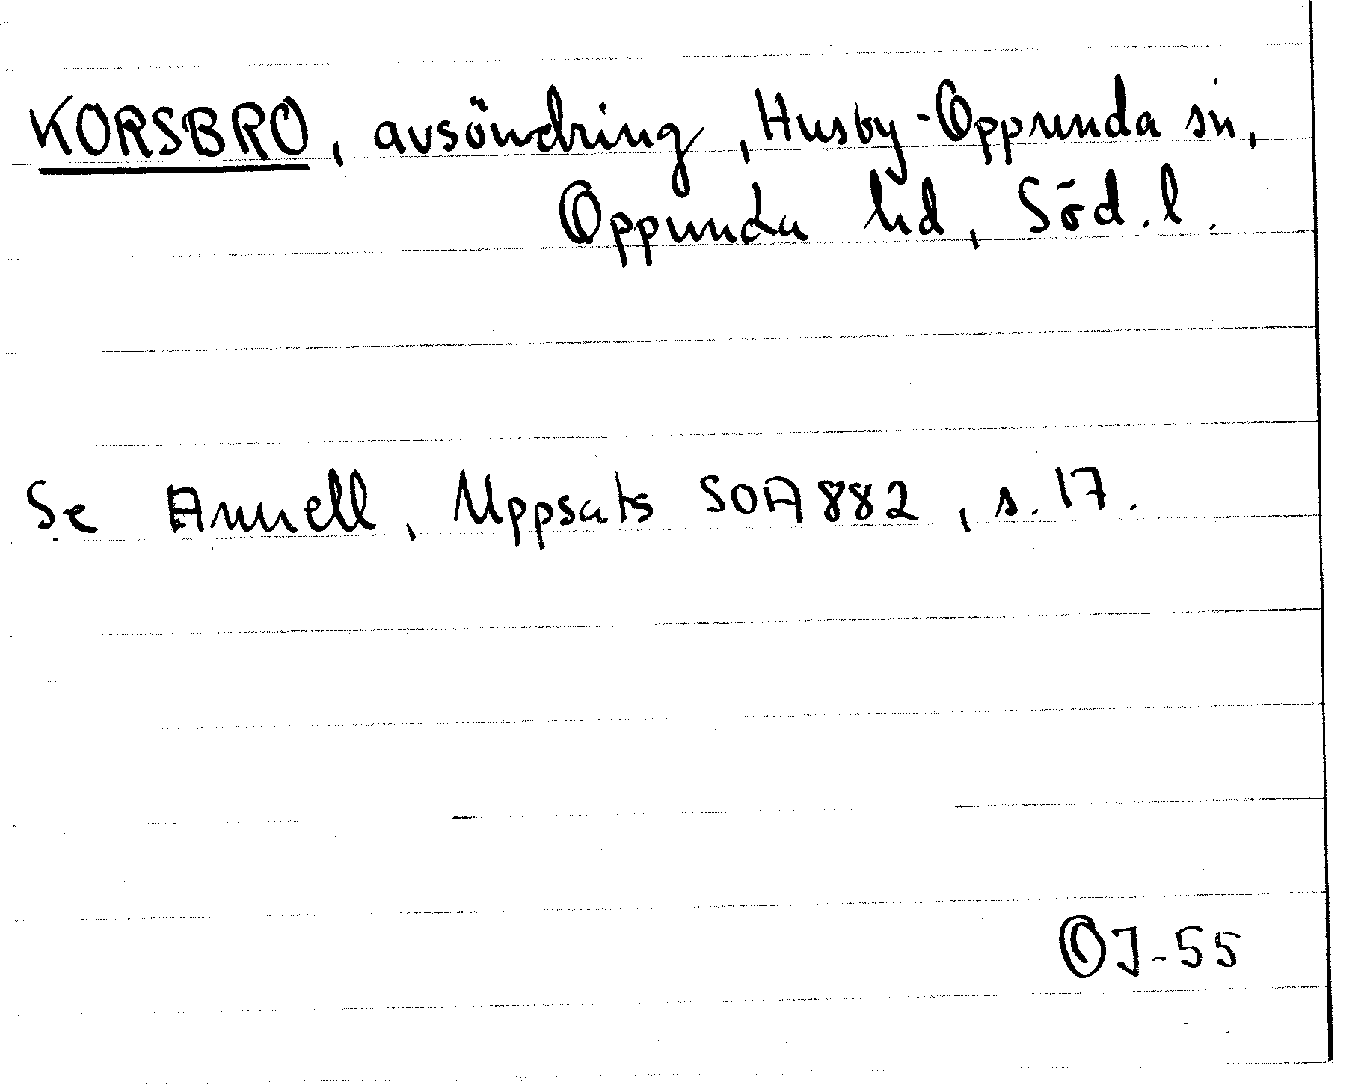 KORSBRO, avsöndring, Husby-Oppunda sn,
Oppunda hd, Söd. l.
Se Annell, Uppsats SOA 882, s. 17.
OJ-55